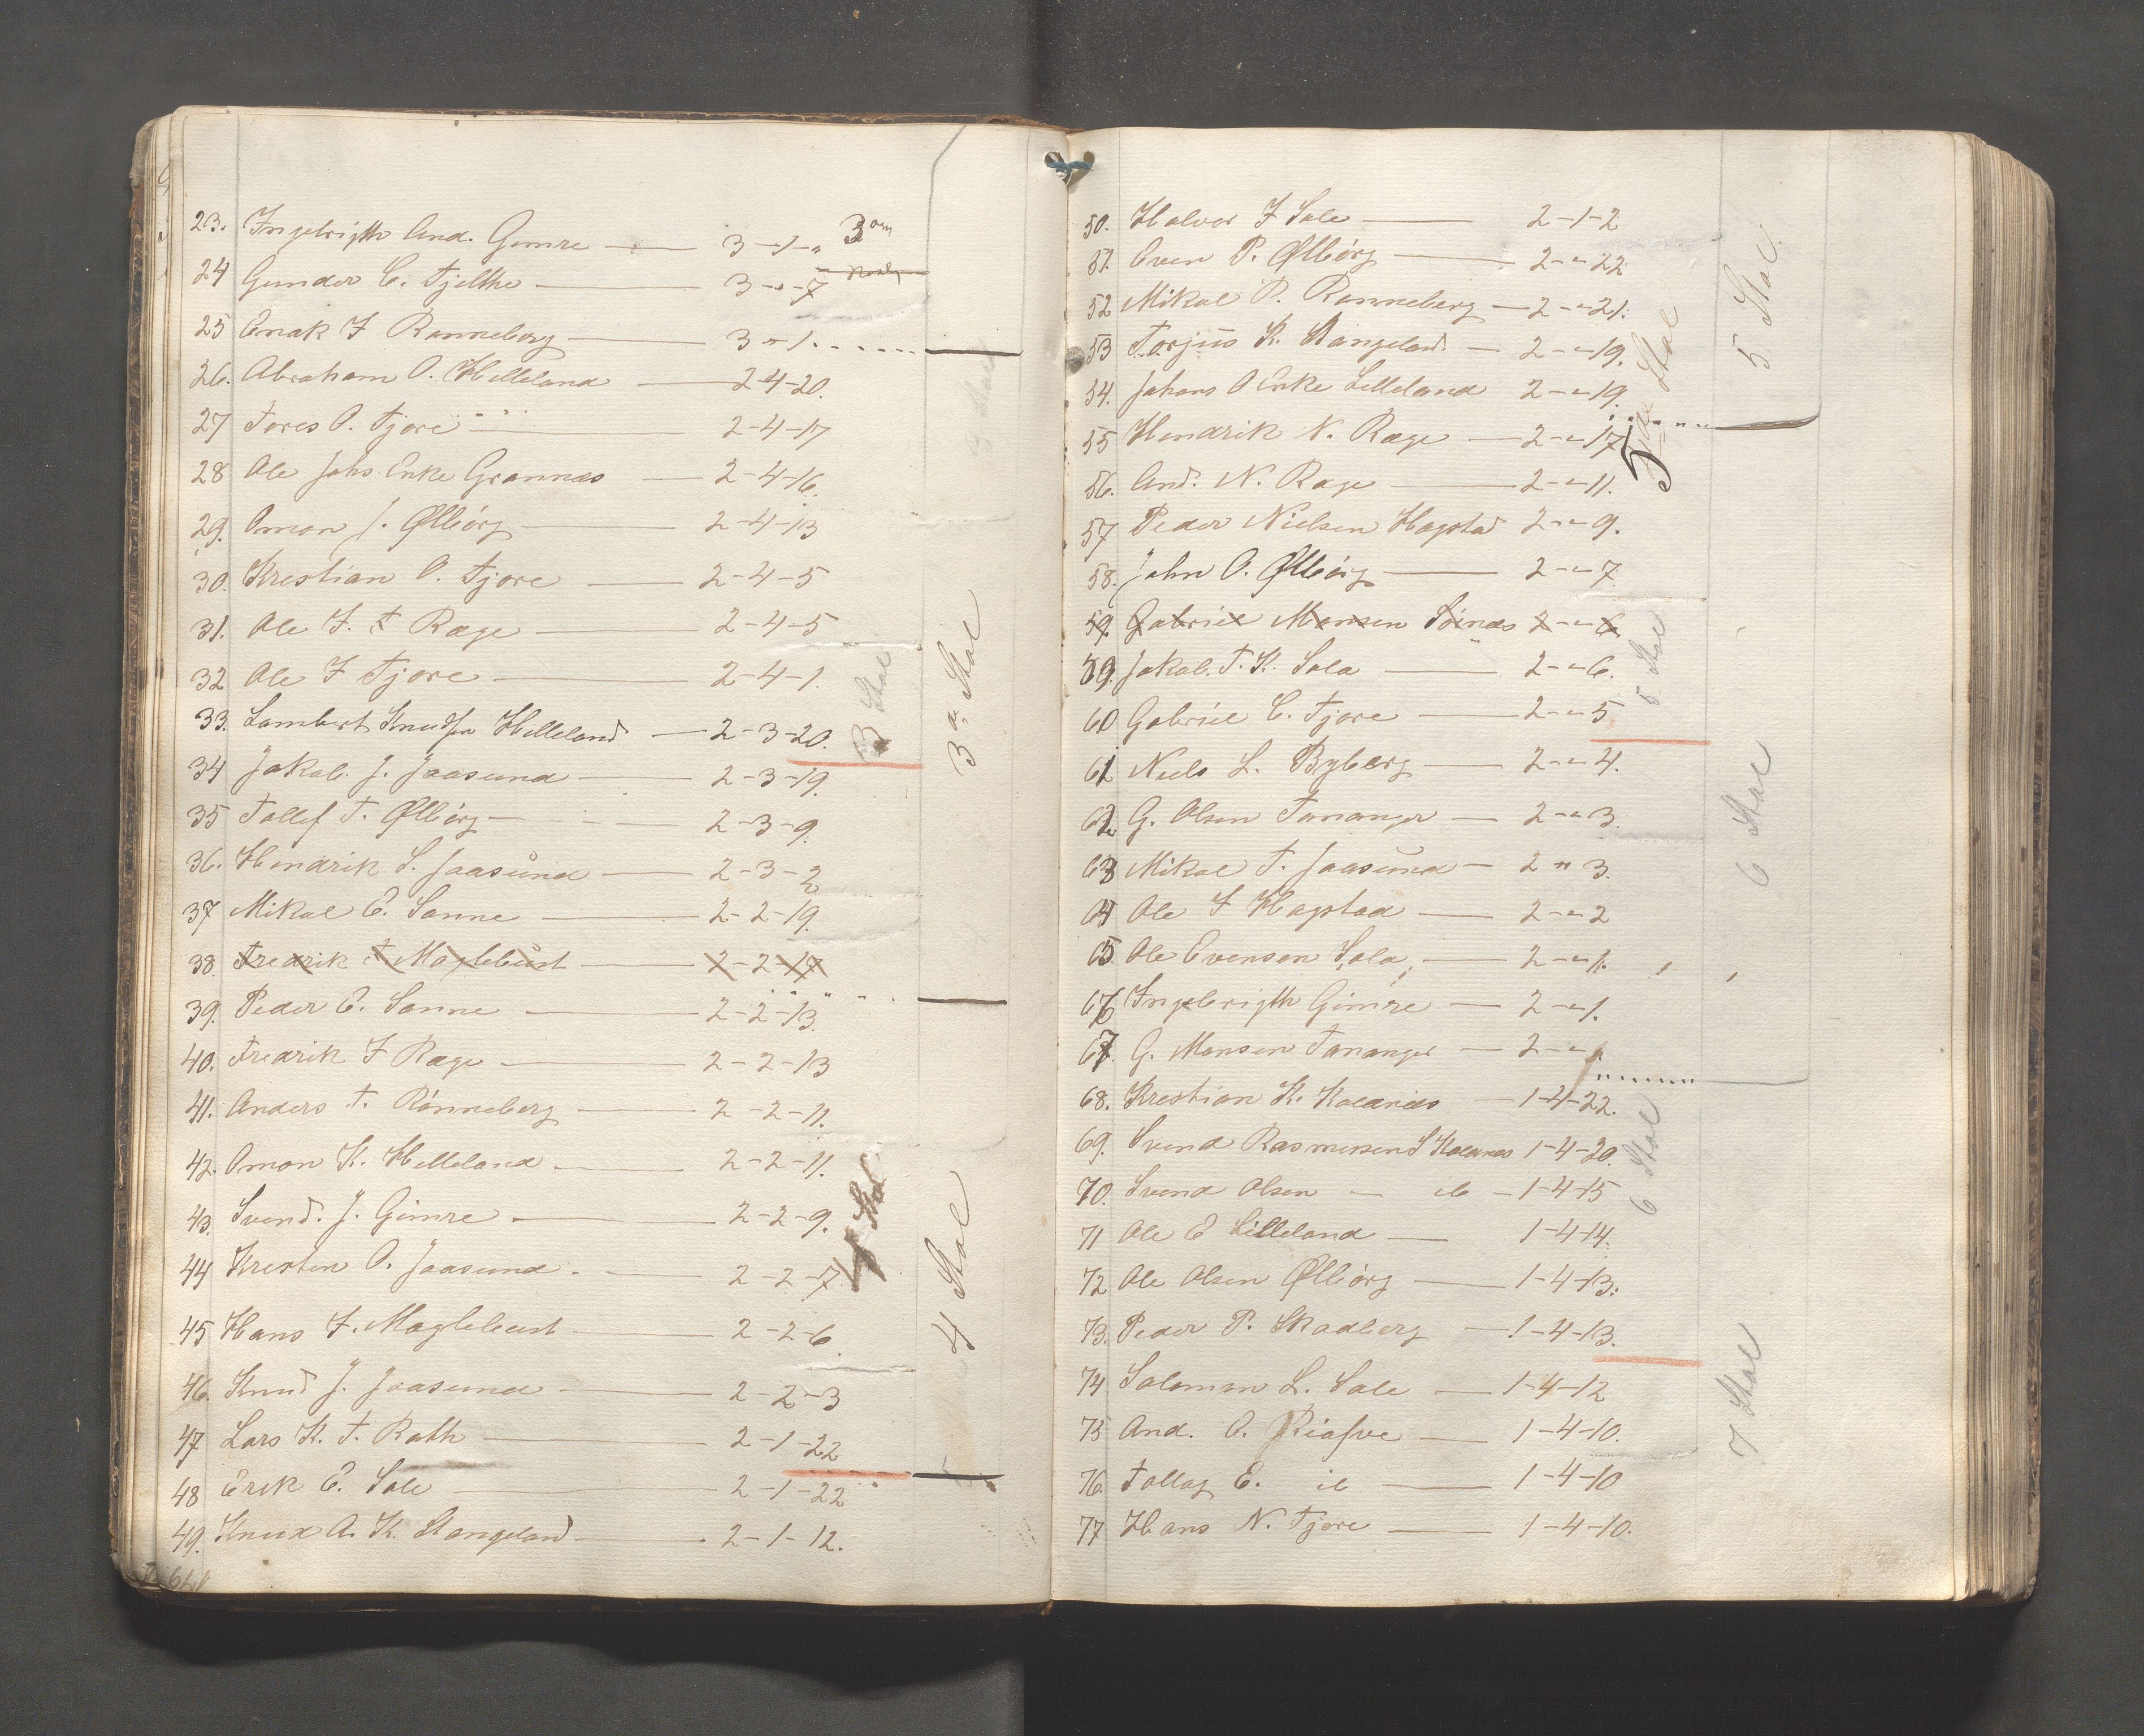 23. Ingebrigth And. Gimre — 3-1-"
24 Gunder C. Tjelthe — 3-"-7
25 Enak F Rønneberg — 3-"-1.
26. Abraham O. Helleland — 2-4-20.
27 Tores O. Tjore — 2-4-17
28 Ole Johs Enke Grannæs — 2-4-16.
29. Omon J. Ølbörg — 2-4-13
30. Krestian O. Tjore — 2-4-5
31. Ole F. T Ræge — 2-4-5
32 Ole F Tjore — 2-4-1.
33. Lambert Knudsen Helleland — 2-3-20.
3 Stol
34 Jakob. J. Jaasund — 2-3-19.
3die Stol
35 Tollef T. Ølbörg — 2-3-9.
36. Hendrik S. Jaasund — 2-3-2
37 Mikal E. Sømme — 2-2-19.
38. Fredrik T Maglebust — 2-2-17
39. Peder E. Sømme — 2-2-13.
40. Fredrik F Ræge — 2-2-13
41. Anders T. Rønneberg — 2-2-11.
42. Omon K. Helleland — 2-2-11.
43. Svend. J. Gimre — 2-2-9.
4 Stol
44 Kresten O. Jaasund — 2-2-7
4 Stol
45 Hans F. Maglebust — 2-2-6.
46. Knud J. Jaasund — 2-2-3
47 Lars K. T. Roth — 2-1-22
48 Erik E. Sole — 2-1-22
49. Knud A. K. Stangeland — 2-1-12.
50. Halvor F Sole — 2-1-2
51. Even P. Ølbörg — 2-"-22
5 Stol.
52 Mikal P. Rønneberg — 2-"-21.
53 Torjus K. Stangeland. — 2-"-19.
54. Johans O Enke Lilleland 2-"-19.
5te Stol
55 Hendrik N. Ræge — 2-"-17
56. And. N. Ræge — 2-"-11.
57 Peder Nielsen Hagstad 2-"-9.
58. John O. Ølbörg — 2-"-7
59. Gabriel Monsen Soinæs 2-"-6
59. Jakob. T. K. Sola — 2-"-6.
5 Stol
60 Gabriel C. Tjore — 2-"-5
61 Niels L. Byberg — 2-"-4.
62. G. Olsen Tananger — 2-"-3.
6 Stol
63 Mikal T. Jaasund — 2 " 3.
64 Ole F Hagstad — 2-"-2
65 Ole Evensen Sola — 2-"-1.
66 Ingebrigth Gimre — 2-"-1.
67. G. Monsen Tananger — 2-"-
68. Krestian K. Kolnæs — 1-4-22.
69. Svend Rasmussen S Kolnæs 1-4-20.
6 Stol
70. Svend Olsen — ib — 1-4-15
71 Ole E Lilleland — 1-4-14.
72 Ole Olsen Ølbörg — 1-4-13.
73. Peder P. Skadberg — 1-4-13.
74 Salamon L. Sole — 1-4-12
7 Stol
75 And. O. Risfve — 1-4-10.
76. Tollag E. ib — 1-4-10
77 Hans N. Tjore — 1-4-10.